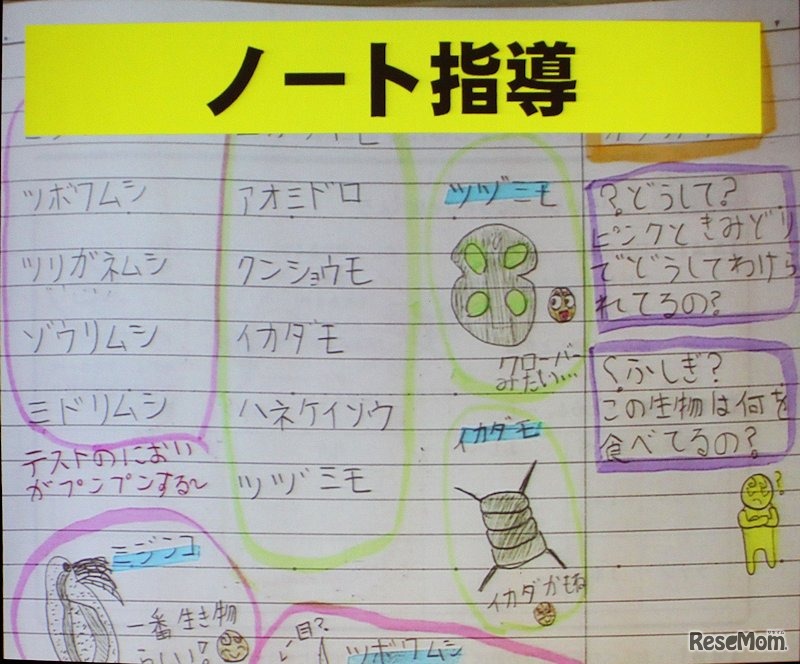 ノート指導
ツボワムシ
ツリガネムシ
ゾウリムシ
ミドリムシ
テストのにおい
がプンプンする~
アオミドロ
クンショウモ
イカダモ
ハネケイソウ
ツヅミモ
ツヅミモ
クローバー
みたい…
イカダモ
イカダかもね
?どうして?
ピンクときみどり
でどうしてわけら
れてるの?
くふしぎ?
この生物は何を
食べてるの?
?
ミジンコ
一番生き物
らしい!
目?
ツボワムシ
ReseMom